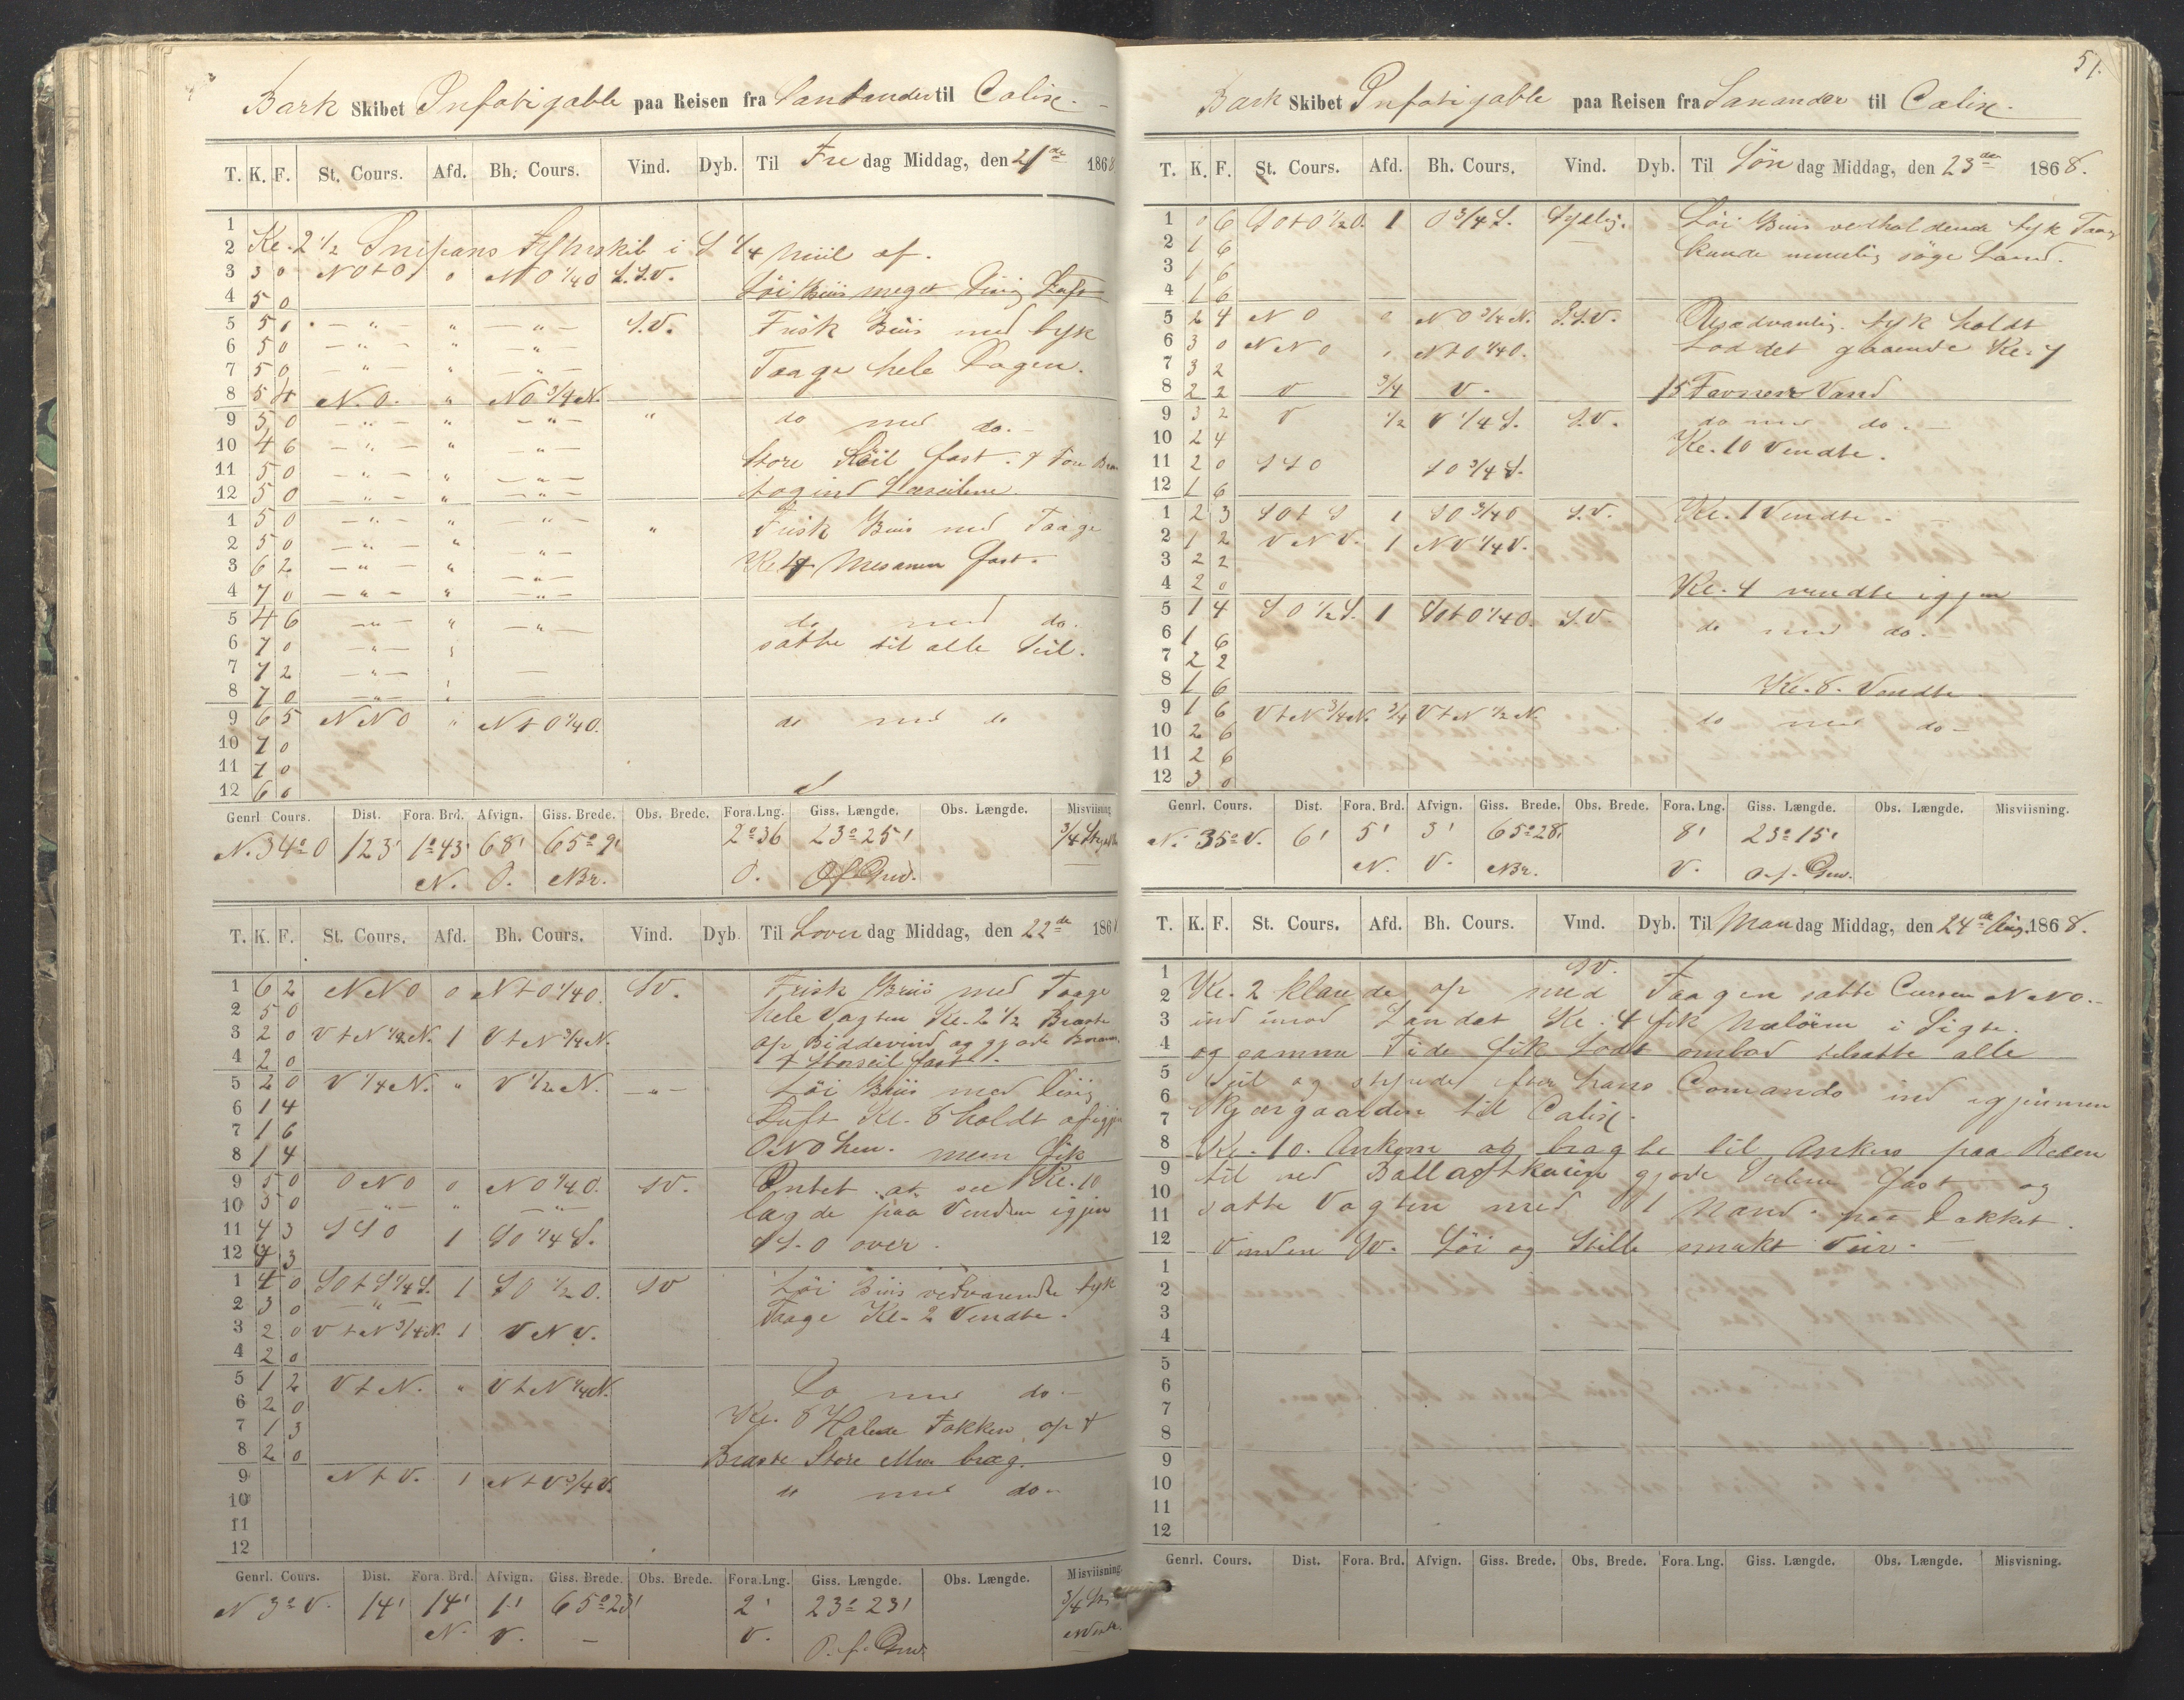 Bark Skibet Infatigable paa Reisen fra Santander til Calix.
T. K. F. St. Cours. Afd. Bh. Cours. Vind. Dyb. Til Fredag Middag, den 21de 1868
1
2 Kl. 2 1/2 Snipans Fyhrskib i S 1/4 Miil af.
3 3 0 NOtO 0 NO 1/4 O S.S.V.
4 5 0 Löi Biis meget Disig Luft
5 5 0 — " — " — " — S.V. Frisk Biis med tyk
6 5 0 — " — " — " —
7 5 0 — " — " — " — Taage hele Dagen.
8 5 4 N.O. " NO 3/4 N.
9 5 0 — " — " — " — " do med do.
10 4 6 — " — " — " —
11 5 0 — " — " — " — Store Seil fast. &
12 5 0 — " — " — " — tog ind Læseilene.
1 5 0 — " — " — " — " Frisk Biis med Taage
2 5 0 — " — " — " —
3 6 2 — " — " — " — Kl. 4 Mesanen fast.
4 7 0 — " — " — " —
5 4 6 — " — " — " — do med do.
6 7 0 — " — satte til alle Seil.
7 7 2 — " —
8 7 0 — " —
9 6 5 NNO " NtO 1/4 O. do med do
10 7 0
11 7 0
12 6 0
Genrl. Cours. Dist. Fora. Brd. Afvign. Giss. Brede. Obs. Brede. Fora. Lng. Giss. Længde. Obs. Længde. Misviisning
N. 34° O 123' 1°43' 68' 65°9' 2°36 23°25' 3/4
N. O. NBr. O. O.f. Grw.
T. K. F. St. Cours. Afd. Bh. Cours. Vind. Dyb. Til Löverdag Middag, den 22de 186
1 6 2 NNO 0 NtO 1/4 O. SV. Frisk Briis med Taage
2 5 0 hele Vagten Kl. 2 1/2 Braste
3 2 0 VtN 1/4 N. 1 VtN 3/4 N. op Biddevind og gjorde
4 2 0 & Storseil fast.
5 2 0 V 1/4 N. " V 1/2 N. — " — Löi Biis med Disig
6 1 4 Luft Kl. 8 holdt af igjen
7 1 6
8 1 4 ONO hen. men fik
9 5 0 ONO 0 NO 1/4 O. SV. Intet at see Kl. 10
10 5 0 — " — " — " — lagde paa Venden igjen
11 4 3 SSO 1 SO 1/4 S. SSO over.
12 4 3
1 4 0 SOtS 1/4 S. 1 SO 1/2 O. SV Löi Biis vedvarende tyk
2 3 0 — " — Taage Kl. 2 Vendte.
3 2 0 VtN 3/4 N. 1 VNV.
4 2 0
5 1 2 VtN. " VtN 1/4 N. Do med do.
6 2 0 Kl. 8 Halede Fokken op &
7 1 3
8 2 0 Braste Store Mers bræg.
9 NtV. 1 NtV 3/4 V. do med do.
10
11
12
Genrl. Cours. Dist. Fora. Brd. Afvign. Giss. Brede. Obs. Brede. Fora. Lng. Giss. Længde. Obs. Længde. Misviisning.
N 3° V. 14' 14' 1' 65°23' 2' 23°23' 3/4
N. V. — V. O. f. Grw.
51.
Bark Skibet Infatigable paa Reisen fra Sanander til Calix.
T. K. F. St. Cours. Afd. Bh. Cours. Vind. Dyb. Til Söndag Middag, den 23de 1868.
1 0 6 SOtO 1/2 O. 1 O 3/4 S. Sydlig. Löi Biis vedholdende tyk Taage
2 1 6 kunde umulig söge Land.
3 1 6
4 1 6
5 2 4 NO 0 NO 3/4 N. S.S.V. Usædvanlig tyk holdt
6 3 0 NNO NtO 1/4 O. Loddet gaaende Kl. 7
7 3 2
8 2 2 V 3/4 V. 15 Favner Vand
9 3 2 V 1/2 V 1/4 S. S.V. do med do.
10 2 4 Kl. 10 Vendte.
11 2 0 SSO SO 3/4 S.
12 1 6
1 2 3 SOtS 1 SO 3/4 O S.V. Kl. 1 Vendte.
2 1 2 VNV. 1 NV 1/4 V.
3 2 2
4 2 0 Kl. 4 vendte igjen
5 1 4 SO 1/2 S. 1 SOtO 1/4 O. S.V. do med do.
6 1 6
7 2 2
8 1 6 Kl. 8. Vendte
9 1 6 VtN 3/4 N. 3/4 VtN 1/2 N. do med do
10 2 6
11 2 6
12 3 0
Genrl. Cours. Dist. Fora. Brd. Afvign. Giss. Brede. Obs. Brede. Fora. Lng. Giss. Længde. Obs. Længde. Misviisning.
N. 35° V. 6' 5' 3' 65°28' 8' 23°15'
N. V. NBr. V. O. f. Grw.
T. K. F. St. Cours. Afd. Bh. Cours. Vind. Dyb. Til Mandag Middag, den 24de Aug. 1868.
1 SV.
2 Kl. 2 klarede op med Taagen satte Cursen NNO.
3 ind imod Landet Kl. 4 fik Malören i Sigte.
4 og samme Tide fik Lods ombord tilsatte alle
5 Seil og styrede efter hans Comando ind igjennem
6
7 Skjærgaarden til Calix.
8 Kl. 10. Ankom og bragte til Ankers paa Reden
9 til ved Ballastkaien gjorde Seilene fast og
10
11 satte Vagten med 1 Mand paa Dækket.
12 Vinden SV. Löi og Stille smukt Veir.
1
2
3
4
5
6
7
8
9
10
11
12
Genrl. Cours. Dist. Fora. Brd. Afvign. Giss. Brede. Obs. Brede. Fora. Lng. Giss. Længde. Obs. Længde. Misvisning.